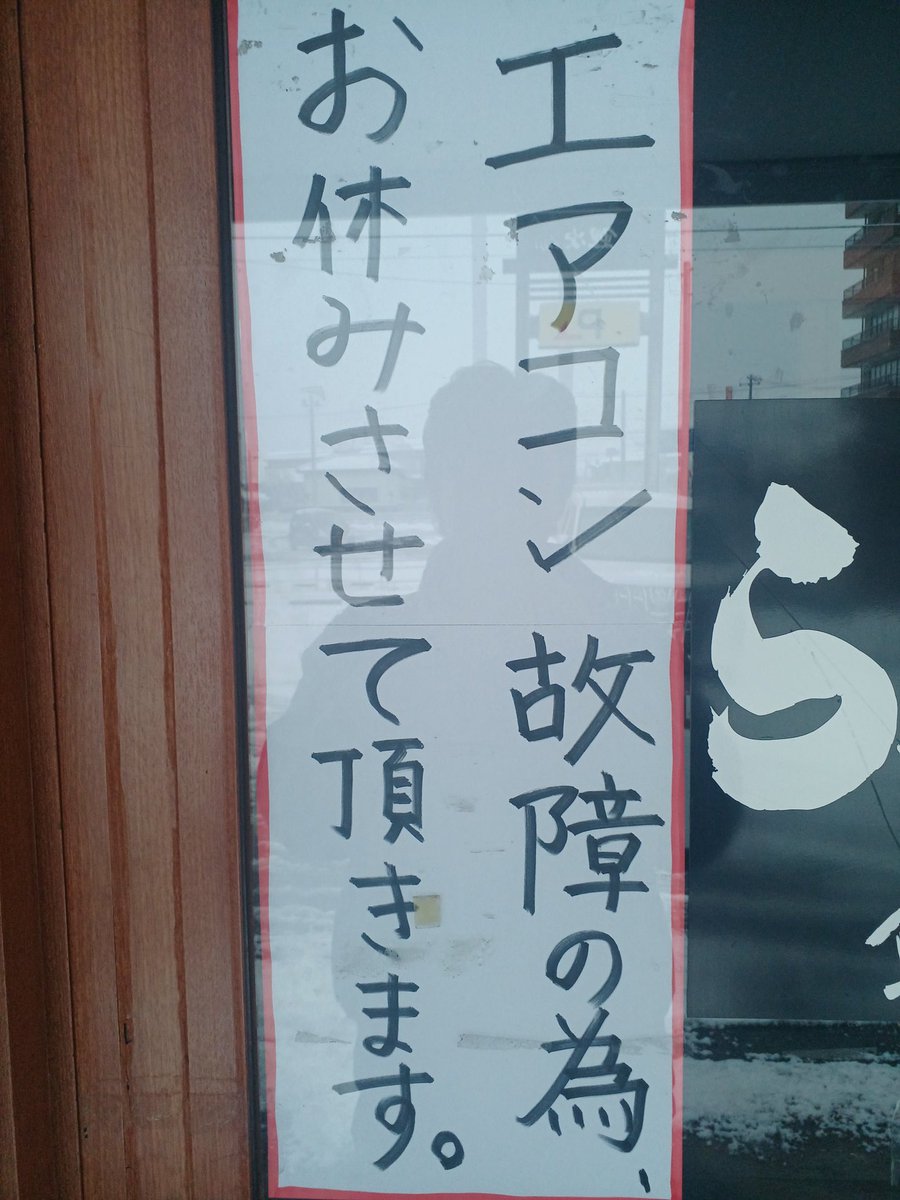 エアコン故障の為、
お休みさせて頂きます。
ら